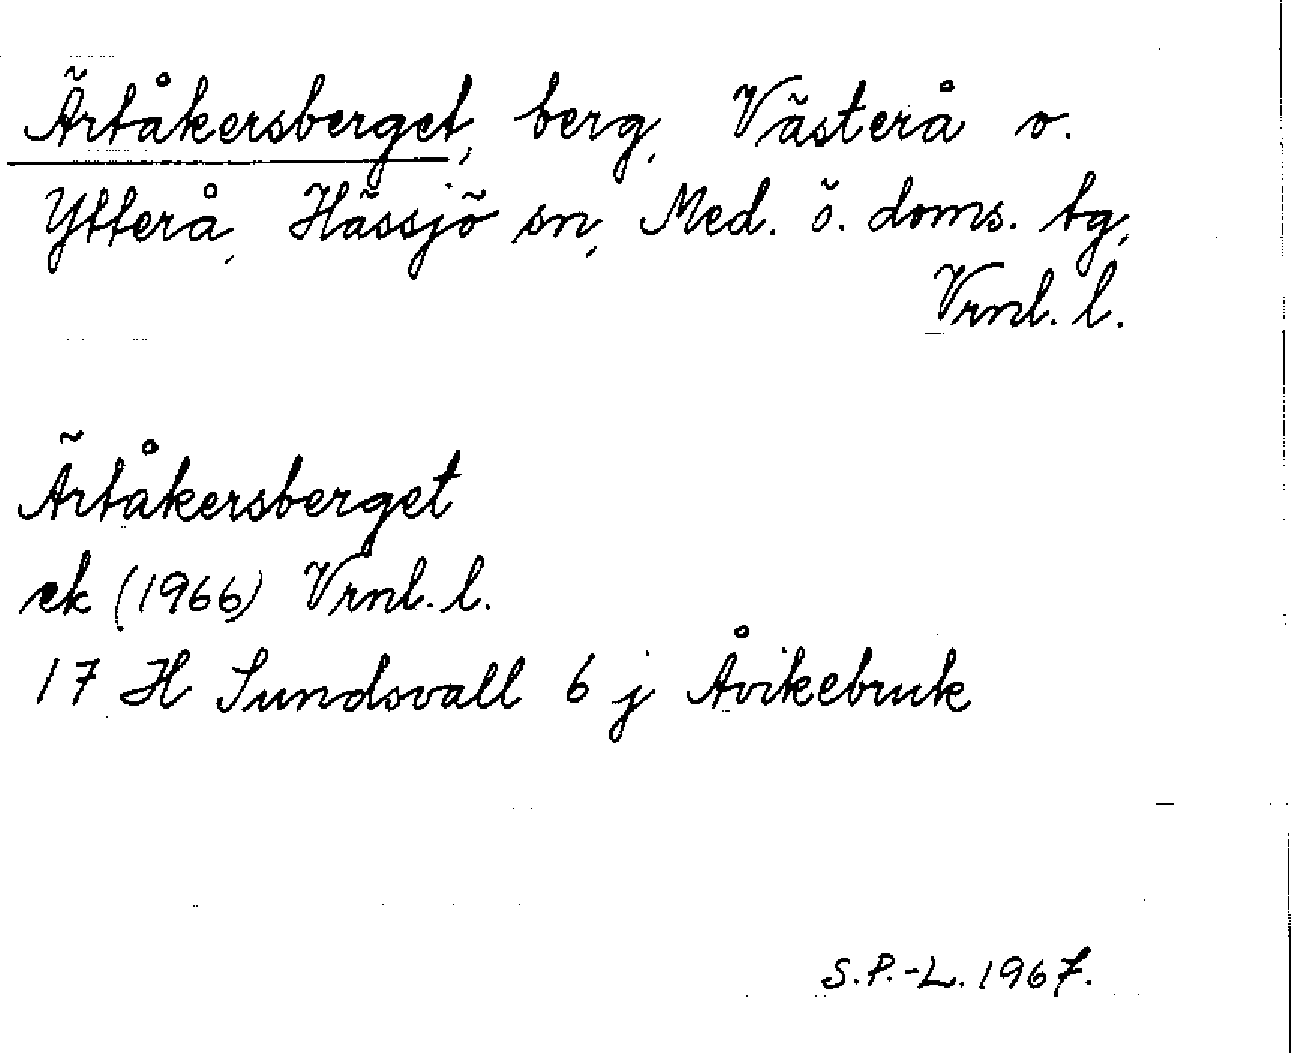 Ärtåkersberget, berg, Västerå o.
Ytterå, Hässjö sn, Med. ö. doms. tg,
Vrnl. l.
Ärtåkersberget
ek (1966) Vrnl. l.
17 H Sundsvall 6 j Åvikebruk
S.P.-L. 1967.